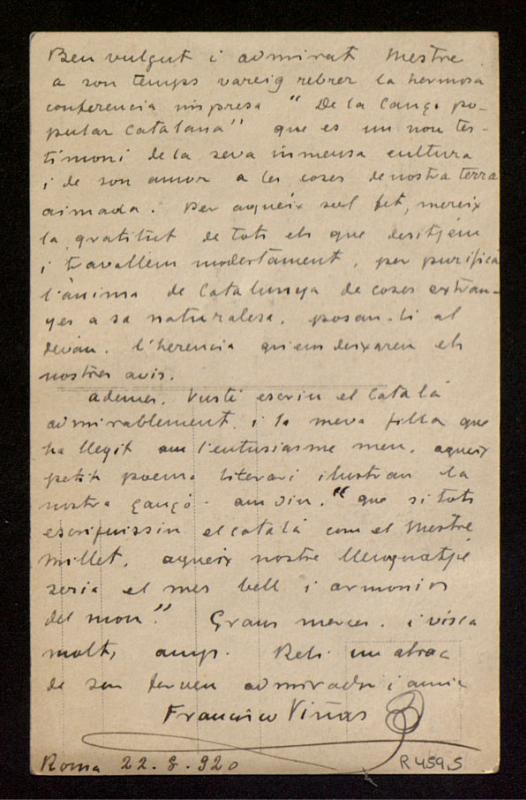 Benvulgut i admirat Mestre
a son temps vareig rebrer la hermosa
conferencia impresa " De la Cançó po-
pular Catalana" que es un nou tes-
timoni de la seva inmensa cultura
i de son amor a les coses de nostra terra
aimada. Per aqueix sol fet, mereix
la gratitut de tots els que desitjém
i travallém modestament, per purificá
l'ánima de Catalunya de coses extran-
yes a sa naturalesa, posan-li al
devan, l'herencia quiens deixaren els
nostres avis.
Ademes, Vusté escriu el Catalá
admirablement, i la meva filla que
ha llegit am l'entusiasme meu, aqueix
petit poema literari ilustran la
nostra Cançó- am diu, "que si tots
escriguissin el catalá com el Mestre
Millet, aqueix nostre llenguatjé
seria el mes bell i armonios
del mon." Grans merces, i visca
molts anys. Rebi un abraç
de son ferven admirador i amic
Francisco Viñas
Roma 22. 8. 920
R 459,5